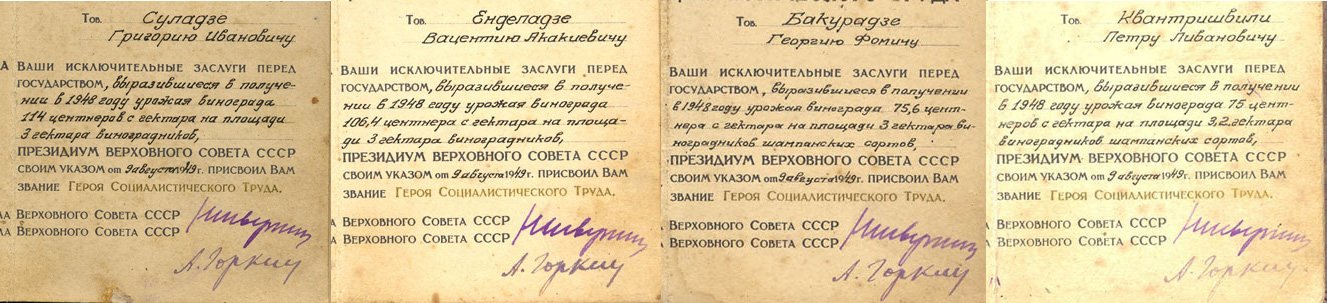 Тов. Суладзе
Григорию Ивановичу
А ВАШИ ИСКЛЮЧИТЕЛЬНЫЕ ЗАСЛУГИ ПЕРЕД
ГОСУДАРСТВОМ, выразившиеся в получе-
нии в 1948 году урожая винограда
114 центнеров с гектара на площади
3 гектара виноградников,
ПРЕЗИДИУМ ВЕРХОВНОГО СОВЕТА СССР
СВОИМ УКАЗОМ от 9 августа 1949 г. ПРИСВОИЛ ВАМ
ЗВАНИЕ ГЕРОЯ СОЦИАЛИСТИЧЕСКОГО ТРУДА.
ЛА ВЕРХОВНОГО СОВЕТА СССР
ЛА ВЕРХОВНОГО СОВЕТА СССР
Н. Шверник
А. Горкин
Тов. Энделадзе
Вацентию Акакиевичу
ВАШИ ИСКЛЮЧИТЕЛЬНЫЕ ЗАСЛУГИ ПЕРЕД
ГОСУДАРСТВОМ, выразившиеся в получе-
нии в 1948 году урожая винограда
106,4 центнера с гектара на площа-
ди 3 гектара виноградников,
ПРЕЗИДИУМ ВЕРХОВНОГО СОВЕТА СССР
СВОИМ УКАЗОМ от 9 августа 1949 г. ПРИСВОИЛ ВАМ
ЗВАНИЕ ГЕРОЯ СОЦИАЛИСТИЧЕСКОГО ТРУДА.
ВЕРХОВНОГО СОВЕТА СССР
А ВЕРХОВНОГО СОВЕТА СССР
Н. Шверник
А. Горкин
Тов. Бакурадзе
Георгию Фомичу
ВАШИ ИСКЛЮЧИТЕЛЬНЫЕ ЗАСЛУГИ ПЕРЕД
ГОСУДАРСТВОМ, выразившиеся в получении
в 1948 году урожая винограда 75,6 цент-
нера с гектара на площади 3 гектара ви-
ноградников шампанских сортов,
ПРЕЗИДИУМ ВЕРХОВНОГО СОВЕТА СССР
СВОИМ УКАЗОМ от 9 августа 1949 г. ПРИСВОИЛ ВАМ
ЗВАНИЕ ГЕРОЯ СОЦИАЛИСТИЧЕСКОГО ТРУДА.
А ВЕРХОВНОГО СОВЕТА СССР
А ВЕРХОВНОГО СОВЕТА СССР
Н. Шверник
А. Горкин
Тов. Квантришвили
Петру Ливановичу
ВАШИ ИСКЛЮЧИТЕЛЬНЫЕ ЗАСЛУГИ ПЕРЕД
ГОСУДАРСТВОМ, выразившиеся в получении
в 1948 году урожая винограда 75 цент-
неров с гектара на площади 3,2 гектара
виноградников шампанских сортов,
ПРЕЗИДИУМ ВЕРХОВНОГО СОВЕТА СССР
СВОИМ УКАЗОМ от 9 августа 1949 г. ПРИСВОИЛ ВАМ
ЗВАНИЕ ГЕРОЯ СОЦИАЛИСТИЧЕСКОГО ТРУДА.
ВЕРХОВНОГО СОВЕТА СССР
А ВЕРХОВНОГО СОВЕТА СССР
Н. Шверник
А. Горкин